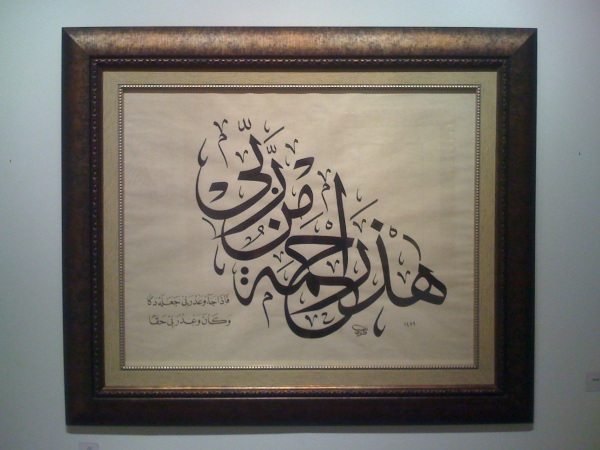 هٰذَا رَحْمَةٌ مِنْ رَبِّي
فَاِذَا جَآءَ وَعْدُ رَبِّي جَعَلَهُ دَكَّا
وَكَانَ وَعْدُ رَبِّي حَقًّا